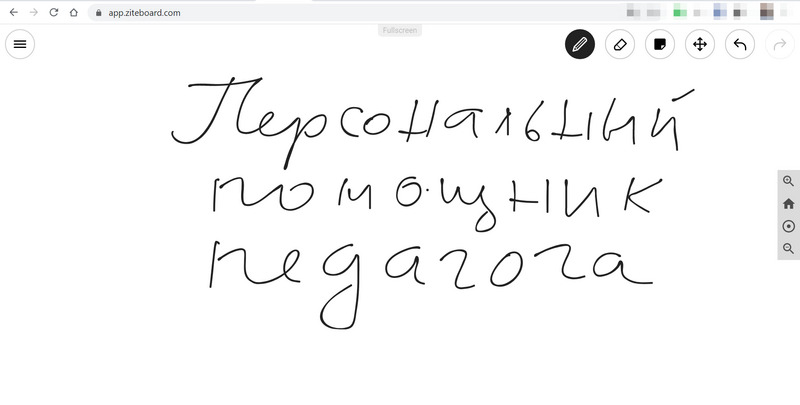 app.ziteboard.com
Fullscreen
Персональный
помощник
педагога